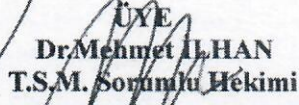 ÜYE
Dr.Mehmet İLHAN
T.S.M. Sorumlu Hekimi